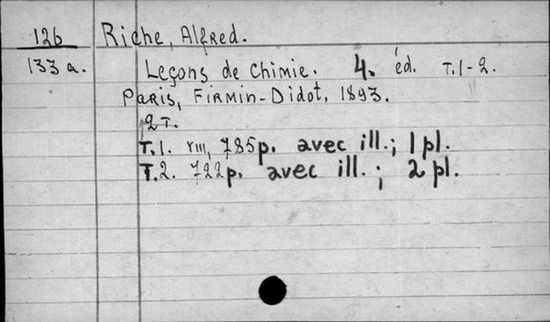 126 Riche, Alfred.
133 a. Leçons de Chimie. 4. éd. T.1-2.
Paris, Firmin-Didot, 1893.
2 T.
T.1. VIII, 785p. avec ill.; 1 pl.
T.2. 722p. avec ill.; 2 pl.